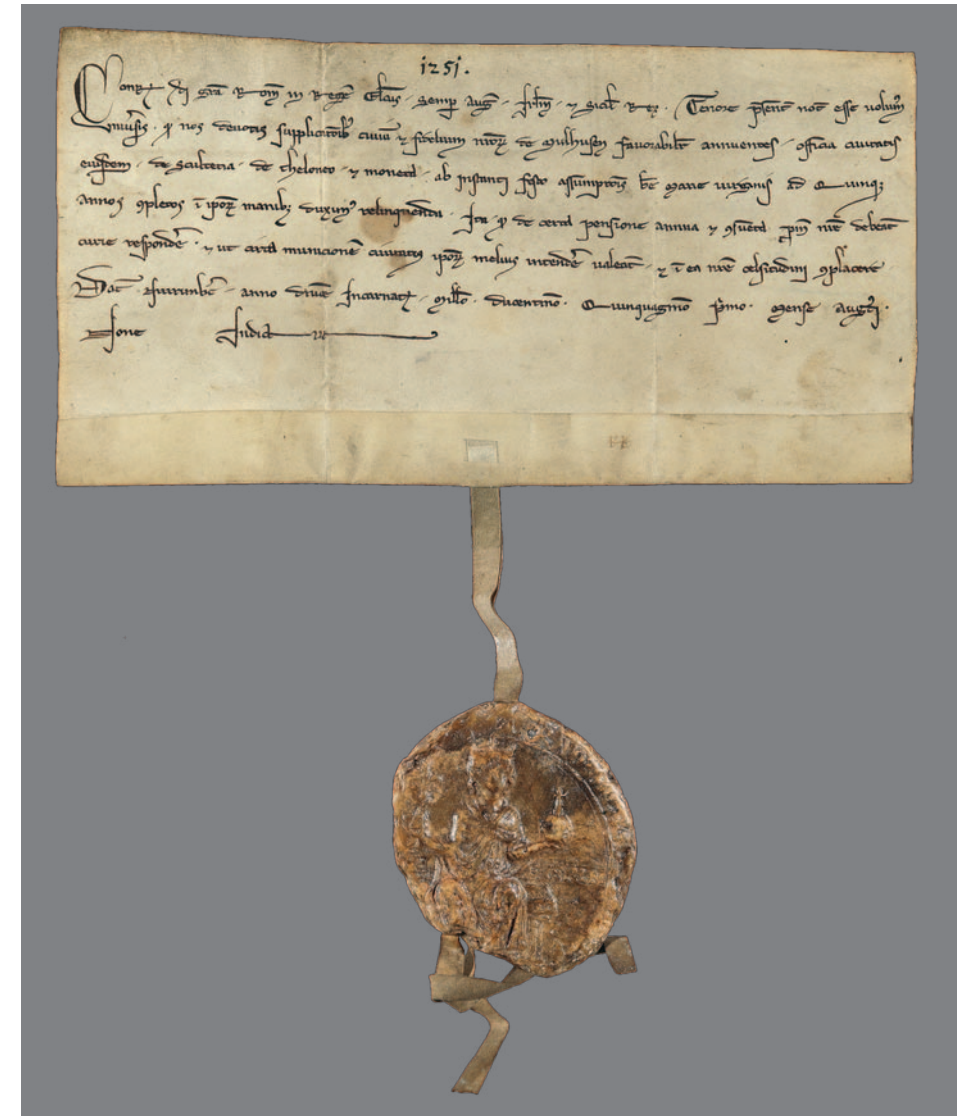 1251.
Conr̄ di gr̄a Rom̄ in Regē El̄cus . Semp Auḡ . Irl̄m . ⁊ Sicil̄ Rex . Tenore p̄sent̄ not̄ esse volum᷒
univ̄sis . ꝙ nos devotis supplicat̄oīb᷒ civiū ⁊ fidelium nr̄oꝝ de Mulhusen favorabilit̄ annuentes . officia civitatis
eiusdem . de Sculteria . de theloneo . ⁊ moneta . ab instanti festo assumptōis b̄e Marie virginis ad Quinqꝫ
Annos ꝯpletos ī ip̄oꝝ manibꝫ duxim᷒ relinquenda . Ita ꝙ de certa pensione annua ⁊ ꝯsueta n̄re debeāt
curie respondē̄ . ⁊ ut circa municionē civitatis ip̄oꝝ melius intendē̄ valeāt . ⁊ ī ea n̄re celsitudini ꝯplacere .
Dat̄ . anno dn̄ice Incarnat̄ . Mill̄o . ducentesimo . Quinquagesimo p̄mo . Mense Augusti .
None Indict̄